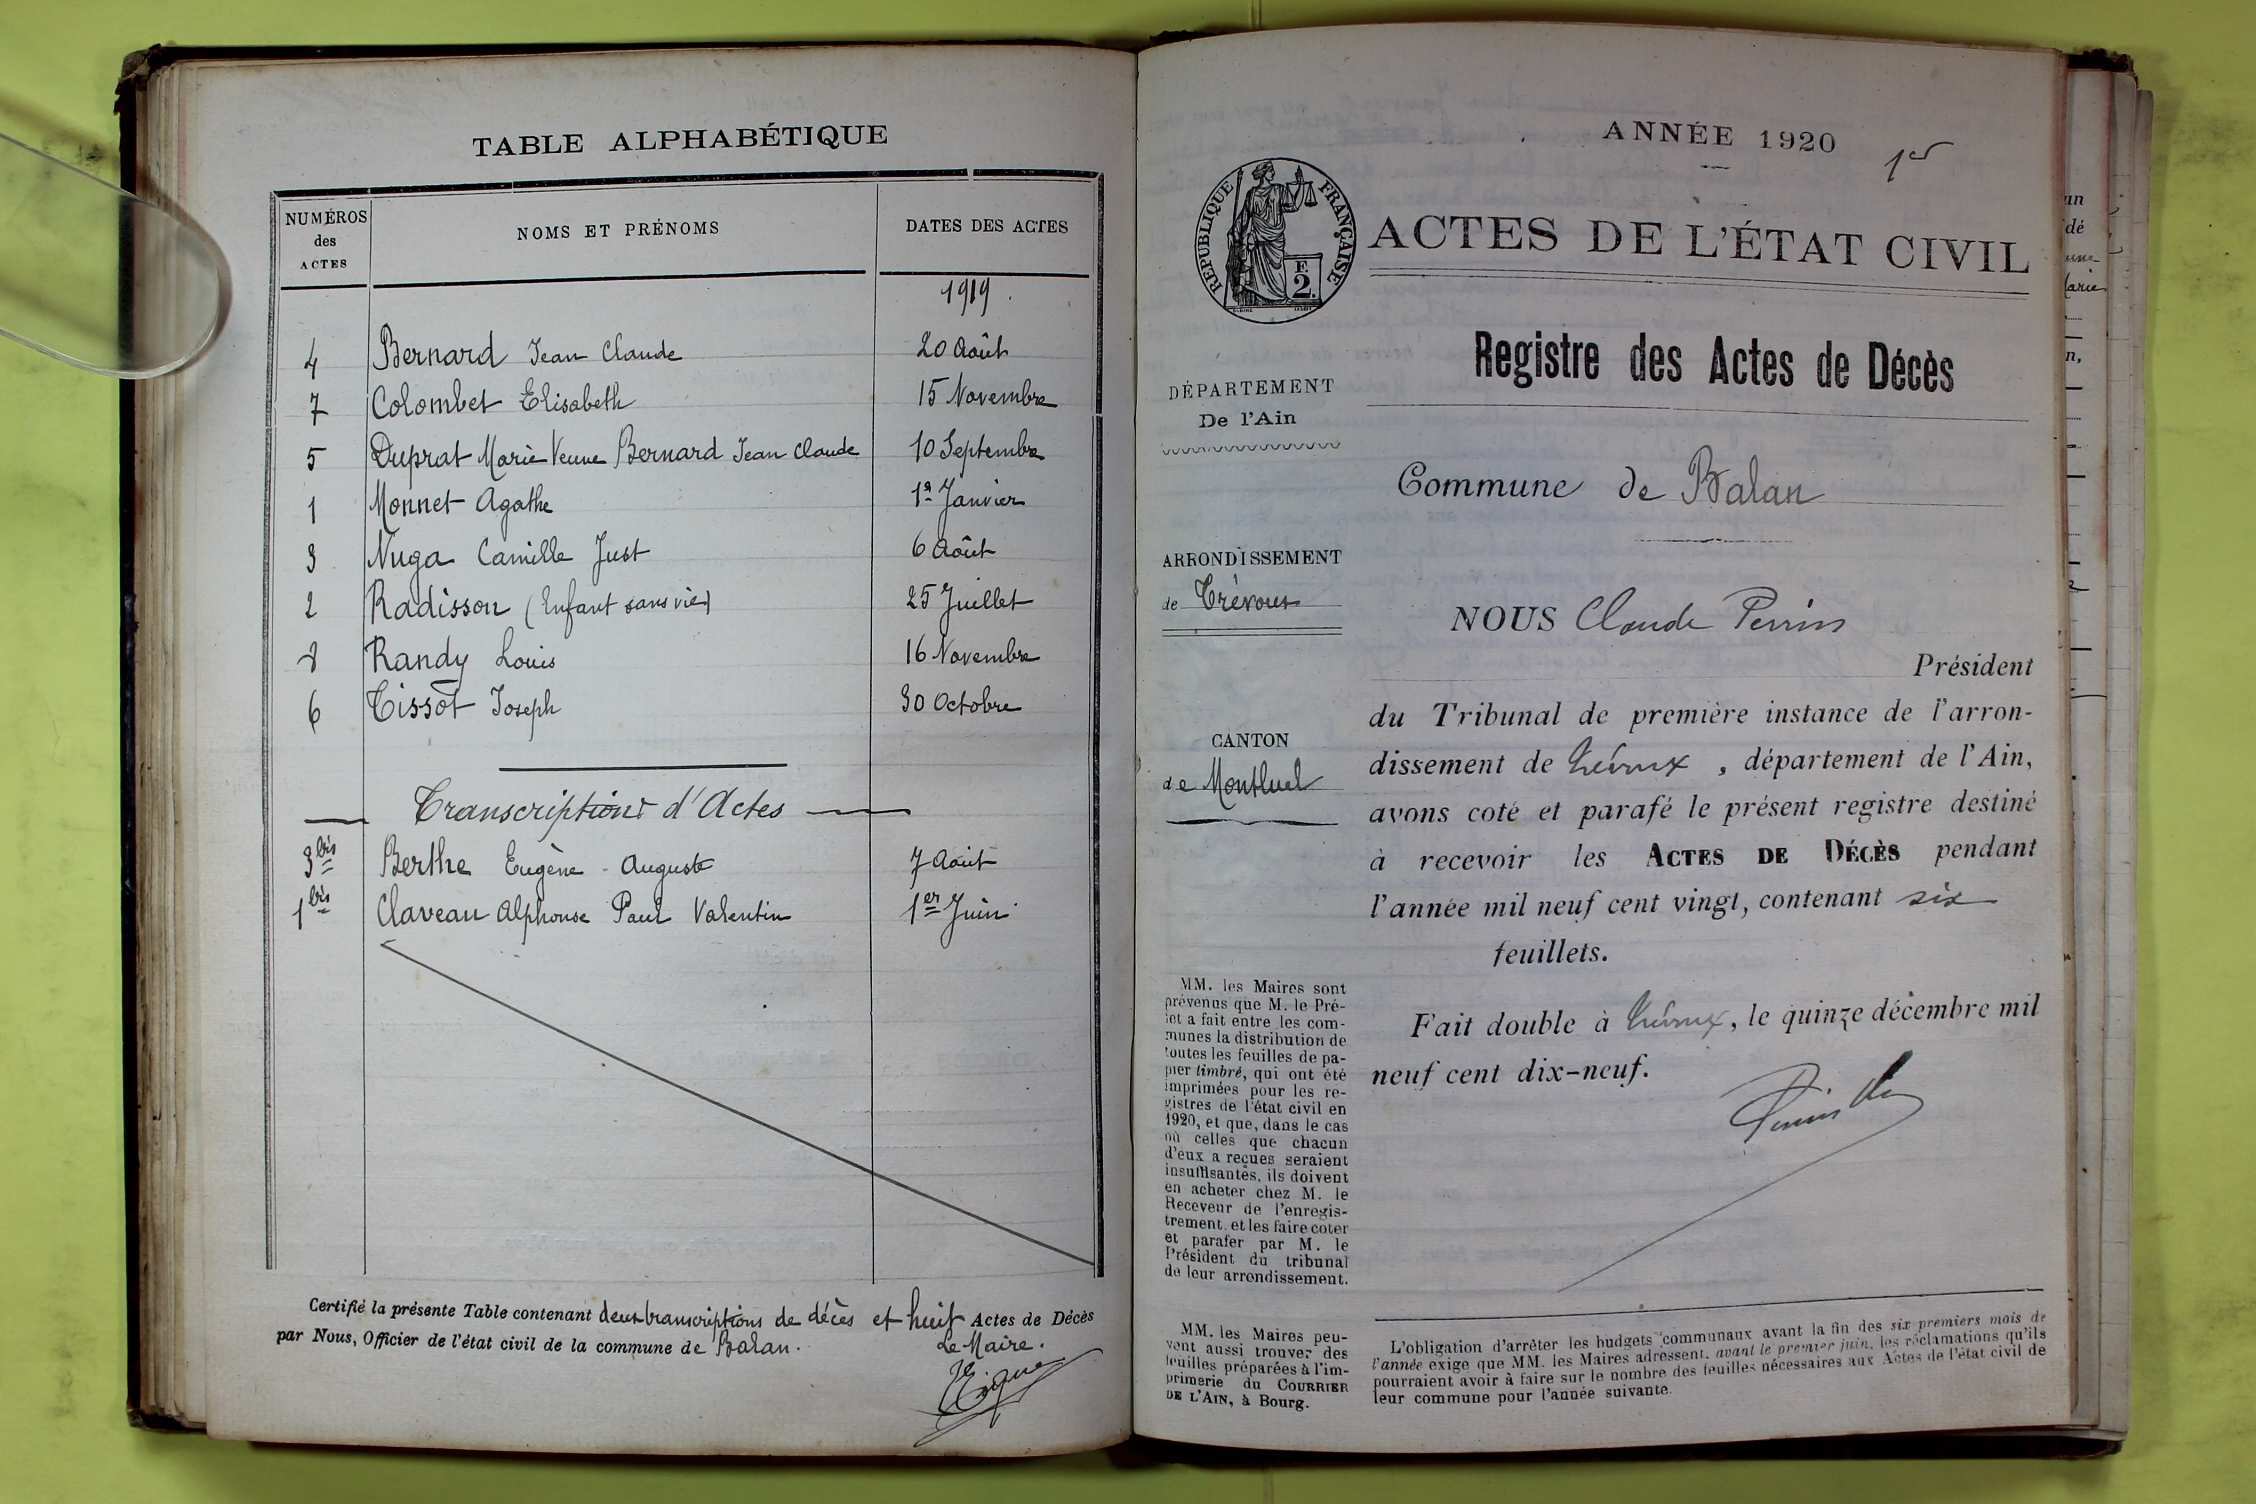 TABLE ALPHABÉTIQUE
NUMÉROS des ACTES NOMS ET PRÉNOMS DATES DES ACTES
1919.
4 Bernard Jean Claude 20 Août
7 Colombet Elisabeth 15 Novembre
5 Duprat Marie Veuve Bernard Jean Claude 10 Septembre
1 Monnet Agathe 1er Janvier
3 Nuga Camille Just 6 Août
2 Radisson (Enfant sans vie) 25 Juillet
8 Randy Louis 16 Novembre
6 Tissot Joseph 30 Octobre
Transcriptions d'Actes
3 bis Berthe Eugène - Auguste 7 Août
1 bis Claveau Alphonse Paul Valentin 1er Juin
Certifié la présente Table contenant deux transcriptions de décès et huit Actes de Décès
par Nous, Officier de l'état civil de la commune de Balan.
Le Maire.
ANNÉE 1920
1er
RÉPUBLIQUE FRANÇAISE
F.
2.
ACTES DE L'ÉTAT CIVIL
Registre des Actes de Décès
DÉPARTEMENT
De l'Ain
Commune de Balan
ARRONDISSEMENT
de Trévoux
NOUS Claude Perrin
Président
du Tribunal de première instance de l'arron-
dissement de Trévoux, département de l'Ain,
avons coté et parafé le présent registre destiné
à recevoir les ACTES DE DÉCÈS pendant
l'année mil neuf cent vingt, contenant six
feuillets.
Fait double à Trévoux, le quinze décembre mil
neuf cent dix-neuf.
CANTON
de Montluel
MM. les Maires sont
prévenus que M. le Pré-
fet a fait entre les com-
munes la distribution de
toutes les feuilles de pa-
pier timbré, qui ont été
imprimées pour les re-
gistres de l'état civil en
1920, et que, dans le cas
où celles que chacun
d'eux a reçues seraient
insuffisantes, ils doivent
en acheter chez M. le
Receveur de l'enregis-
trement, et les faire coter
et parafer par M. le
Président du tribunal
de leur arrondissement.
MM. les Maires peu-
vent aussi trouver des
feuilles préparées à l'im-
primerie du COURRIER
DE L'AIN, à Bourg.
L'obligation d'arrêter les budgets communaux avant la fin des six premiers mois de
l'année exige que MM. les Maires adressent, avant le premier juin, les réclamations qu'ils
pourraient avoir à faire sur le nombre des feuilles nécessaires aux Actes de l'état civil de
leur commune pour l'année suivante.